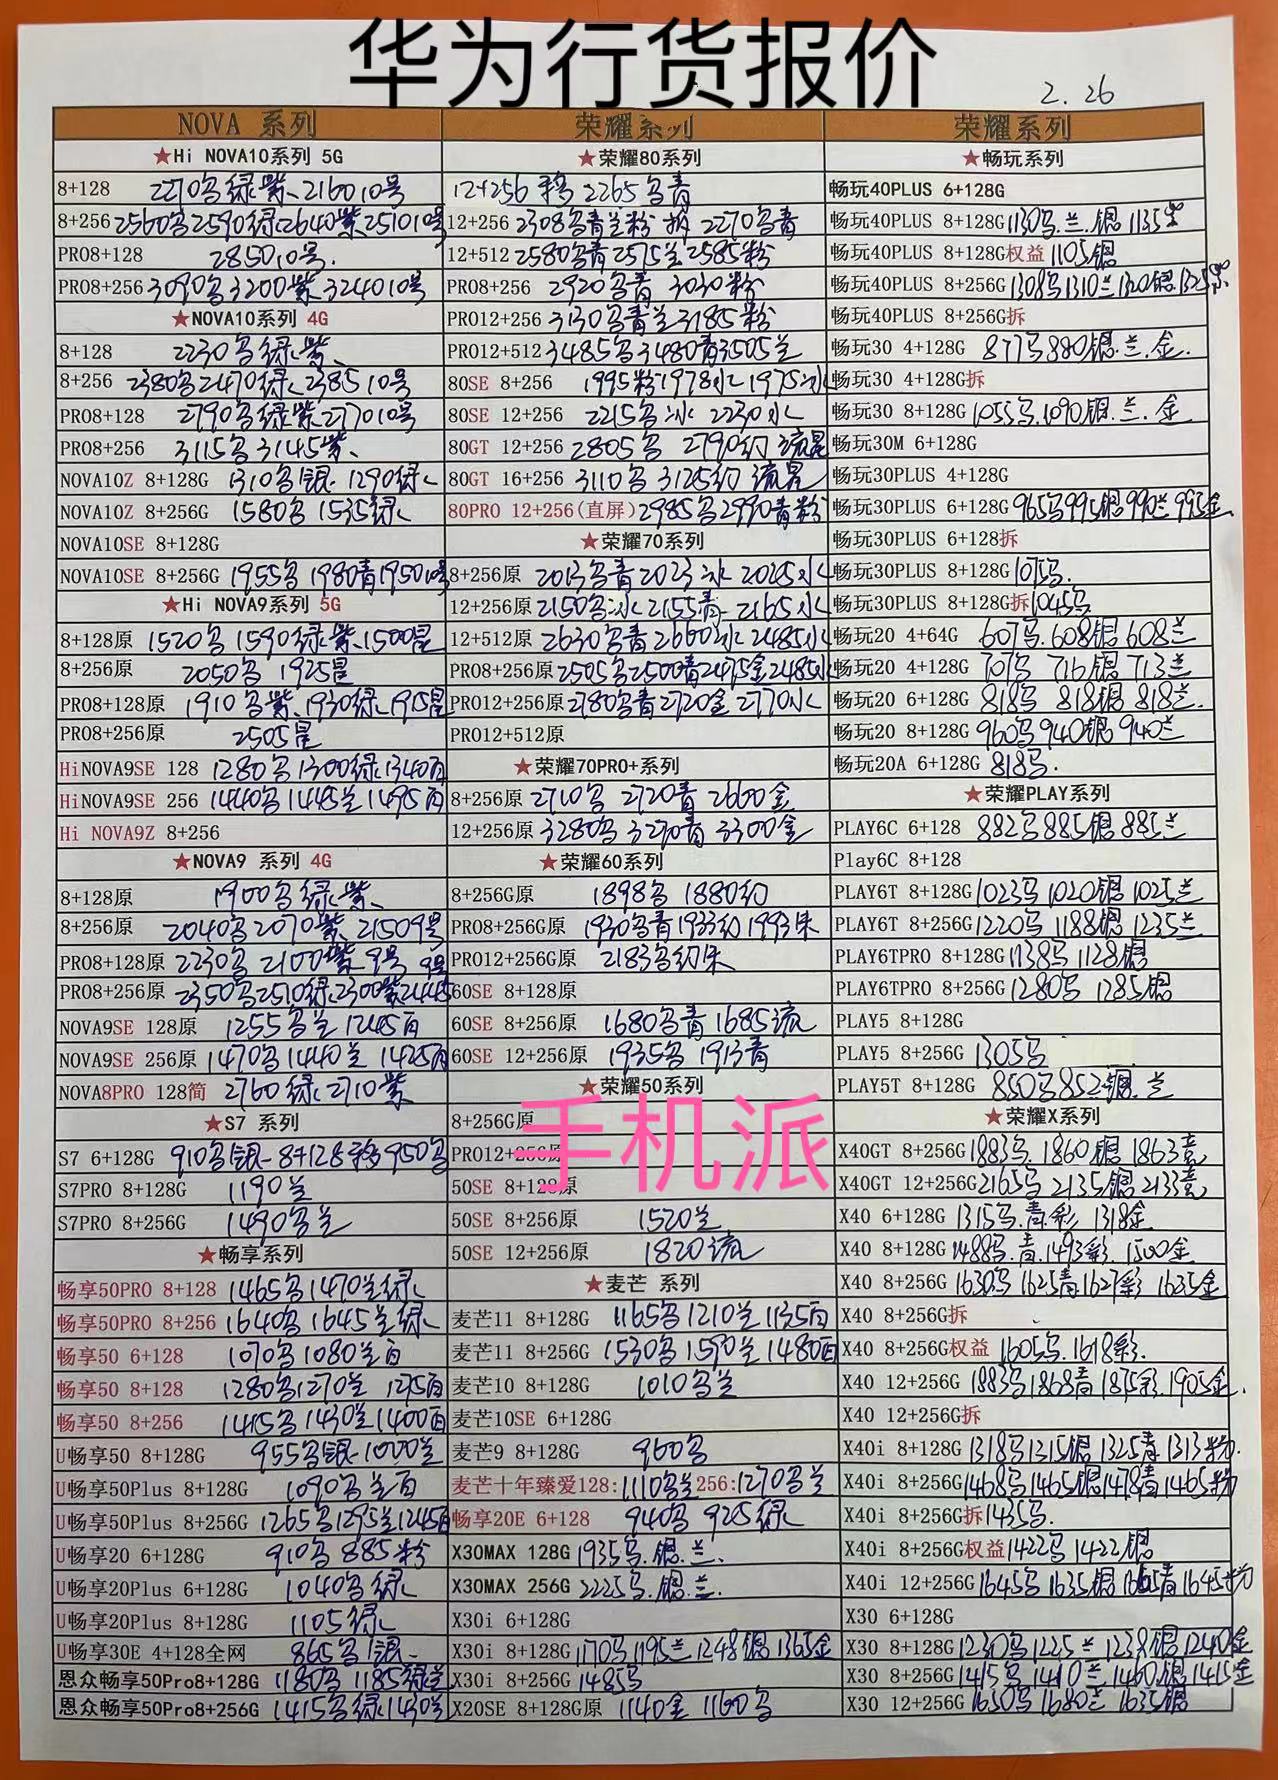 华为行货报价
2.26
NOVA 系列
★Hi NOVA10系列 5G
8+128 2270鸟绿紫 2160 10号
8+256 2560鸟2590绿2640紫2510 10号
PRO8+128 2850 10号.
PRO8+256 3090鸟3200紫3240 10号
★NOVA10系列 4G
8+128 2230鸟绿紫
8+256 2380鸟2470绿2385 10号
PRO8+128 2790鸟绿紫2770 10号
PRO8+256 3115鸟3145紫
NOVA10Z 8+128G 1310鸟银.1290绿
NOVA10Z 8+256G 1580鸟 1535绿
NOVA10SE 8+128G
NOVA10SE 8+256G 1955鸟 1980青1950 10号
★Hi NOVA9系列 5G
8+128原 1520鸟 1590绿紫1500星
8+256原 2050鸟 1925星
PRO8+128原 1910鸟紫1930绿1915星
PRO8+256原 2505星
HiNOVA9SE 128 1280鸟1300绿1340白
HiNOVA9SE 256 1440鸟1445兰1495白
Hi NOVA9Z 8+256
★NOVA9 系列 4G
8+128原 1900鸟绿紫
8+256原 2040鸟2070紫2150 9号
PRO8+128原 2230鸟2100紫9号
PRO8+256原 2350鸟2510绿2300紫2445
NOVA9SE 128原 1255鸟兰1245白
NOVA9SE 256原 1470鸟1440兰1425白
NOVA8PRO 128简 2760绿2710紫
★S7 系列
S7 6+128G 910鸟银 8+128移950鸟
S7PRO 8+128G 1190兰
S7PRO 8+256G 1490鸟兰
★畅享系列
畅享50PRO 8+128 1465鸟1470兰绿
畅享50PRO 8+256 1640鸟1645兰绿
畅享50 6+128 1070鸟1080兰白
畅享50 8+128 1280鸟1270兰 1275白
畅享50 8+256 1415鸟1430兰1400白
U畅享50 8+128G 955鸟银 1000兰
U畅享50Plus 8+128G 1090鸟兰白
U畅享50Plus 8+256G 1265鸟1295兰1245白
U畅享20 6+128G 910鸟 885粉
U畅享20Plus 6+128G 1040鸟绿
U畅享20Plus 8+128G 1105绿
U畅享30E 4+128全网 865鸟银
恩众畅享50Pro8+128G 1180鸟1185绿兰
恩众畅享50Pro8+256G 1415鸟绿1430兰
荣耀系列
★荣耀80系列
12+256 移 2265鸟青
12+256 2308鸟青兰粉 拆 2270鸟青
12+512 2580鸟青2575兰2585粉
PRO8+256 2920鸟青 3030粉
PRO12+256 3130鸟青兰3185粉
PRO12+512 3485鸟3480青3505兰
80SE 8+256 1995粉1978水1975冰
80SE 12+256 2215鸟冰 2230水
80GT 12+256 2805鸟 2790幻 流星
80GT 16+256 3110鸟 3125幻 流星
80PRO 12+256(直屏) 2985鸟2990青粉
★荣耀70系列
8+256原 2013鸟青2023冰 2025水
12+256原 2150鸟冰2155青 2165水
12+512原 2630鸟青2660冰2485水
PRO8+256原 2505鸟2500青2495金2485水
PRO12+256原 2780鸟青2720金2770水
PRO12+512原
★荣耀70PRO+系列
8+256原 2710鸟 2720青 2660金
12+256原 3280鸟3270青3300金
★荣耀60系列
8+256G原 1898鸟 1880幻
PRO8+256G原 1930鸟青1933幻1993朱
PRO12+256G原 2183鸟幻朱
60SE 8+128原
60SE 8+256原 1680鸟青1685流
60SE 12+256原 1935鸟 1913青
★荣耀50系列
8+256G原
手机派
PRO12+256原
50SE 8+128原
50SE 8+256原 1520兰
50SE 12+256原 1820流
★麦芒 系列
麦芒11 8+128G 1165鸟1210兰1135白
麦芒11 8+256G 1530鸟1590兰1480白
麦芒10 8+128G 1010鸟兰
麦芒10SE 6+128G
麦芒9 8+128G 960鸟
麦芒十年臻爱128:1110鸟兰256:1270鸟兰
畅享20E 6+128 940鸟 925绿
X30MAX 128G 1935鸟.银.兰.
X30MAX 256G 2225鸟.银.兰.
X30i 6+128G
X30i 8+128G 1170鸟1195兰1248银1365金
X30i 8+256G 1485鸟
X20SE 8+128G原 1140金 1160鸟
荣耀系列
★畅玩系列
畅玩40PLUS 6+128G
畅玩40PLUS 8+128G 1130鸟.兰.银 1135紫
畅玩40PLUS 8+128G权益 1105银
畅玩40PLUS 8+256G 1308鸟1310兰1320银1325紫
畅玩40PLUS 8+256G拆
畅玩30 4+128G 877鸟880银.兰.金.
畅玩30 4+128G拆
畅玩30 8+128G 1055鸟.1090银.兰.金
畅玩30M 6+128G
畅玩30PLUS 4+128G
畅玩30PLUS 6+128G 965鸟995银990兰995金
畅玩30PLUS 6+128拆
畅玩30PLUS 8+128G 1075鸟.
畅玩30PLUS 8+128G拆 1045鸟
畅玩20 4+64G 607鸟.608银608兰
畅玩20 4+128G 707鸟 716银 713兰
畅玩20 6+128G 818鸟 818银 818兰.
畅玩20 8+128G 960鸟940银940兰
畅玩20A 6+128G 818鸟.
★荣耀PLAY系列
PLAY6C 6+128 882鸟885银885兰
Play6C 8+128
PLAY6T 8+128G 1023鸟1020银1025兰
PLAY6T 8+256G 1220鸟1188银1235兰
PLAY6TPRO 8+128G 1138鸟 1128银
PLAY6TPRO 8+256G 1280鸟 1285银
PLAY5 8+128G
PLAY5 8+256G 1305鸟
PLAY5T 8+128G 850鸟852银.兰
★荣耀X系列
X40GT 8+256G 1883鸟.1860银1863竞
X40GT 12+256G 2165鸟2135银2133竞
X40 6+128G 1315鸟.青.彩 1318金
X40 8+128G 1488鸟.青.1493彩.1500金
X40 8+256G 1630鸟1625青1627彩 1635金
X40 8+256G拆
X40 8+256G权益 1605鸟.1618彩.
X40 12+256G 1883鸟1868青1875彩.1905金.
X40 12+256G拆
X40i 8+128G 1318鸟1315银1325青1313粉.
X40i 8+256G 1468鸟1465银1478青1465粉
X40i 8+256G拆 1435鸟.
X40i 8+256G权益 1422鸟1422银
X40i 12+256G 1645鸟1635银1665青1645粉
X30 6+128G
X30 8+128G 1230鸟1225兰1238银1240金
X30 8+256G 1415鸟1410兰1460银1415金
X30 12+256G 1650鸟1680兰1635银